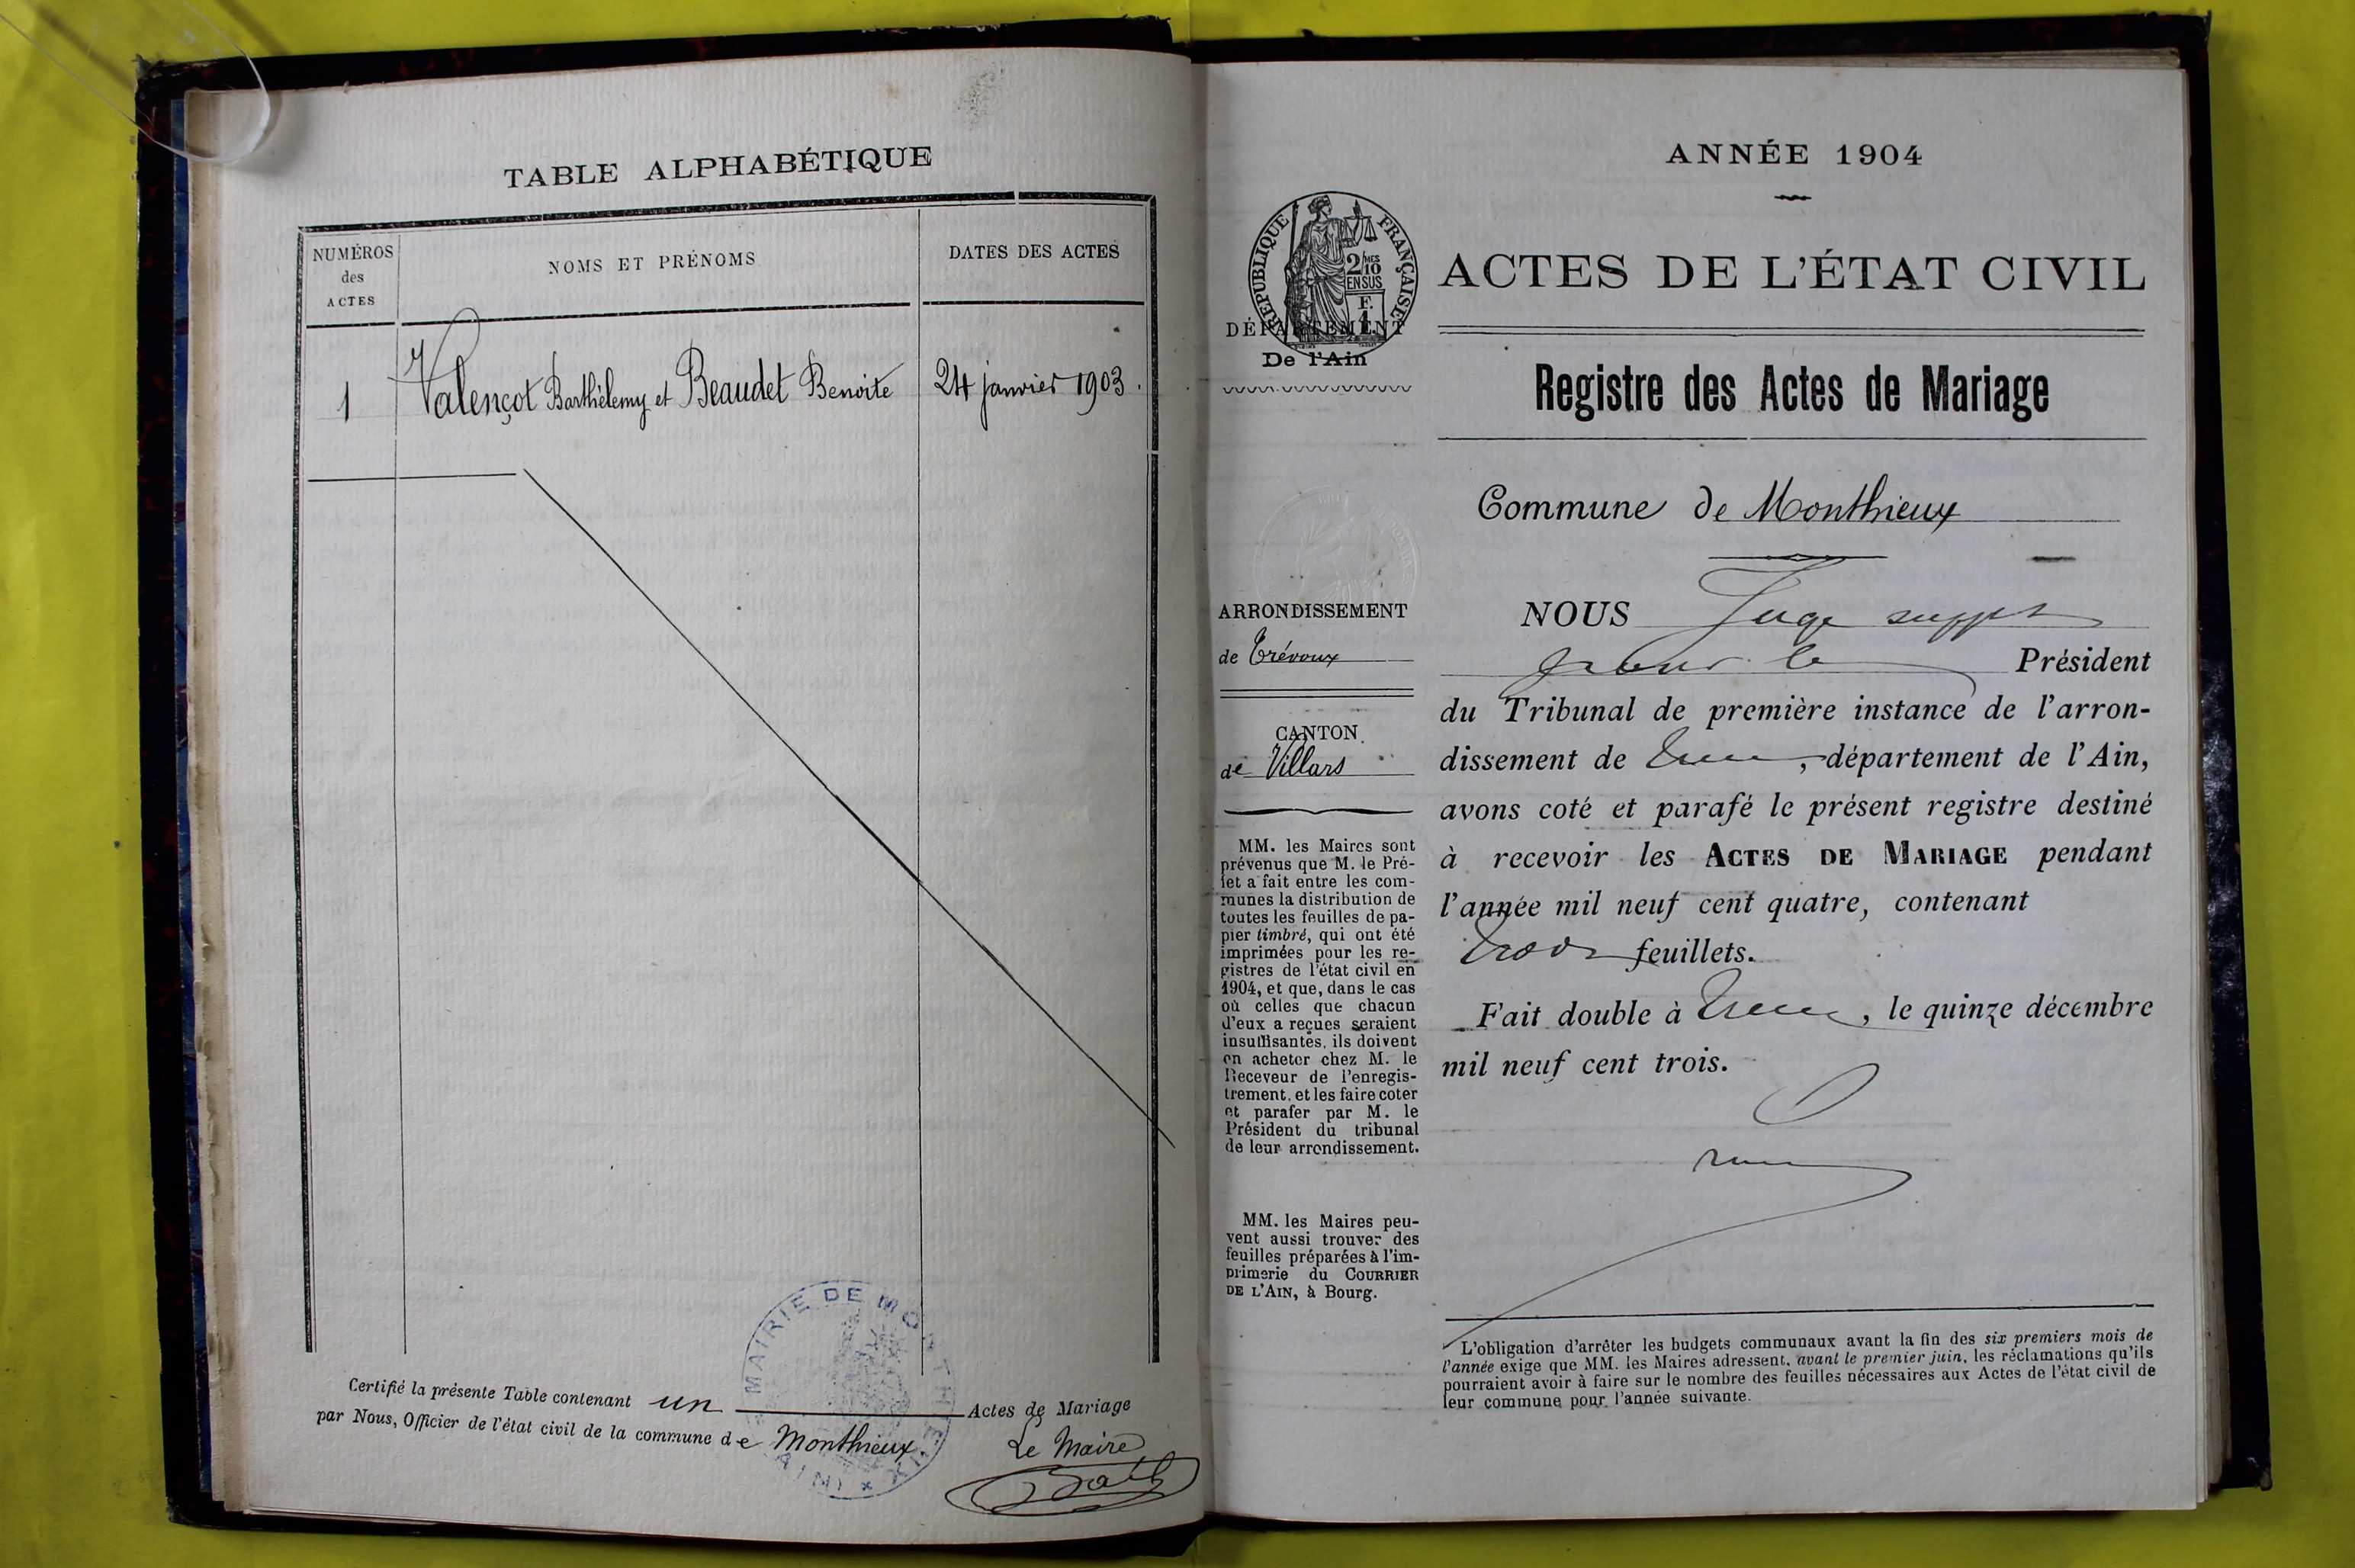 TABLE ALPHABÉTIQUE
NUMÉROS
des
ACTES
NOMS ET PRÉNOMS
DATES DES ACTES
1
Valençot Barthélemy et Beaudet Benoite
24 janvier 1903.
Certifié la présente Table contenant un Actes de Mariage
par Nous, Officier de l'état civil de la commune de Monthieux
Le Maire
MAIRIE DE MONTHIEUX
(AIN)
ANNÉE 1904
RÉPUBLIQUE FRANÇAISE
2/10 MES
EN SUS
F.
1
DÉPARTEMENT
De l'Ain
ACTES DE L'ÉTAT CIVIL
Registre des Actes de Mariage
Commune de Monthieux
ARRONDISSEMENT
de Trévoux
CANTON
de Villars
MM. les Maires sont
prévenus que M. le Pré-
fet a fait entre les com-
munes la distribution de
toutes les feuilles de pa-
pier timbré, qui ont été
imprimées pour les re-
gistres de l'état civil en
1904, et que, dans le cas
où celles que chacun
d'eux a reçues seraient
insuffisantes, ils doivent
en acheter chez M. le
Receveur de l'enregis-
trement, et les faire coter
et parafer par M. le
Président du tribunal
de leur arrondissement.
MM. les Maires peu-
vent aussi trouver des
feuilles préparées à l'im-
primerie du COURRIER
DE L'AIN, à Bourg.
NOUS Juge suppt
pour le Président
du Tribunal de première instance de l'arron-
dissement de , département de l'Ain,
avons coté et parafé le présent registre destiné
à recevoir les ACTES DE MARIAGE pendant
l'année mil neuf cent quatre, contenant
trois feuillets.
Fait double à , le quinze décembre
mil neuf cent trois.
L'obligation d'arrêter les budgets communaux avant la fin des six premiers mois de
l'année exige que MM. les Maires adressent, avant le premier juin, les réclamations qu'ils
pourraient avoir à faire sur le nombre des feuilles nécessaires aux Actes de l'état civil de
leur commune pour l'année suivante.